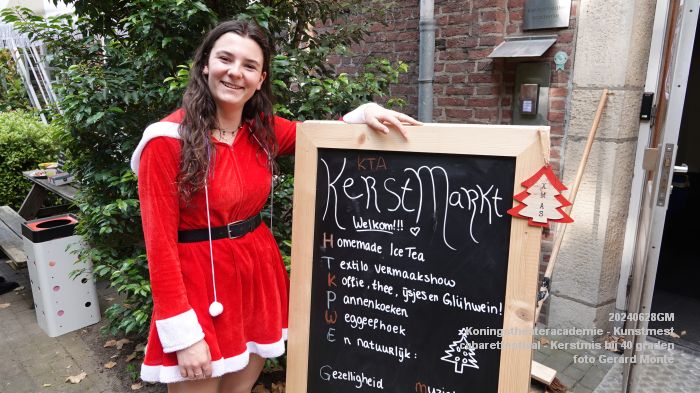 KTA
KerstMarkt
Welkom!!! ♡
Homemade IceTea
Textilo vermaakshow
Koffie, thee, ijsjes en Glühwein!
Pannenkoeken
Weggeefhoek
En natuurlijk:
Gezelligheid muziek
XMAS
20240628GM
Koningstheateracademie - Kunstmest
cabaretfestival - Kerstmis bij 40 graden
foto Gerard Monté